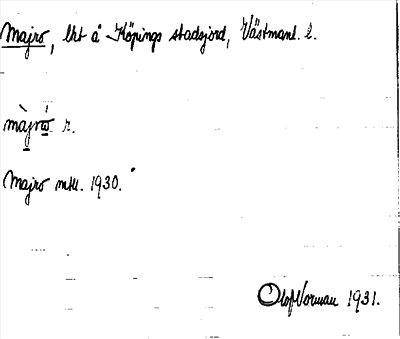 Majro, lht å Köpings stadsjord, Västmanl. l.
màjrω r.
Majro mtl. 1930.
Olof Norman 1931.